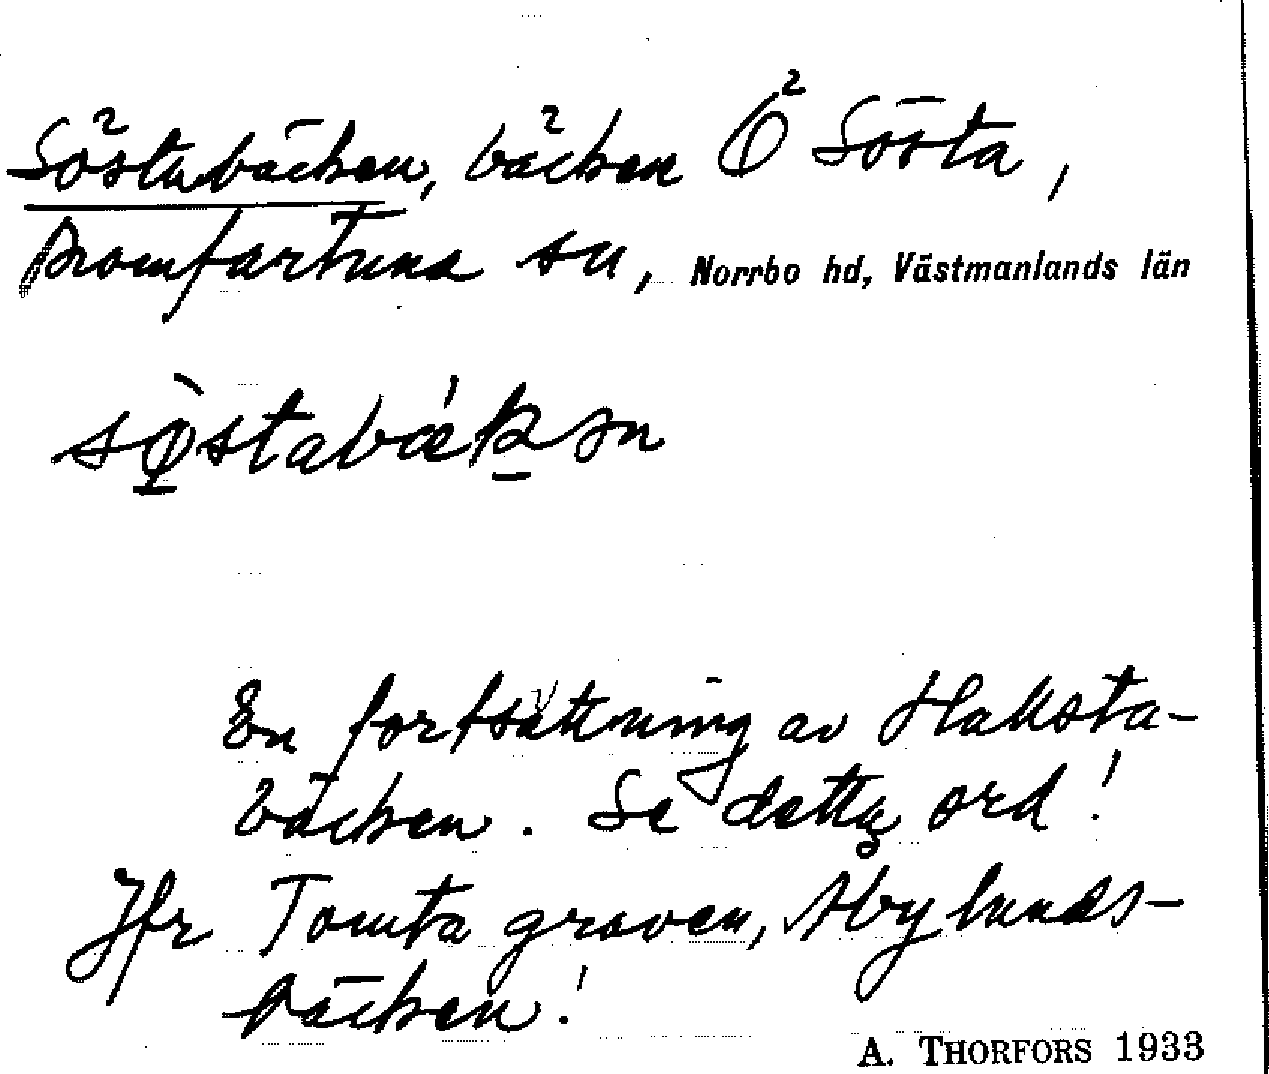 Söstabäcken, bäcken Ö Sösta,
Romfartuna sn, Norrbo hd, Västmanlands län
sø̱̀stabǽḵən
En fortsättning av Hallsta-
bäcken. Se detta ord!
Jfr Tomta graven, Åbylunds-
bäcken!
A. THORFORS 1933